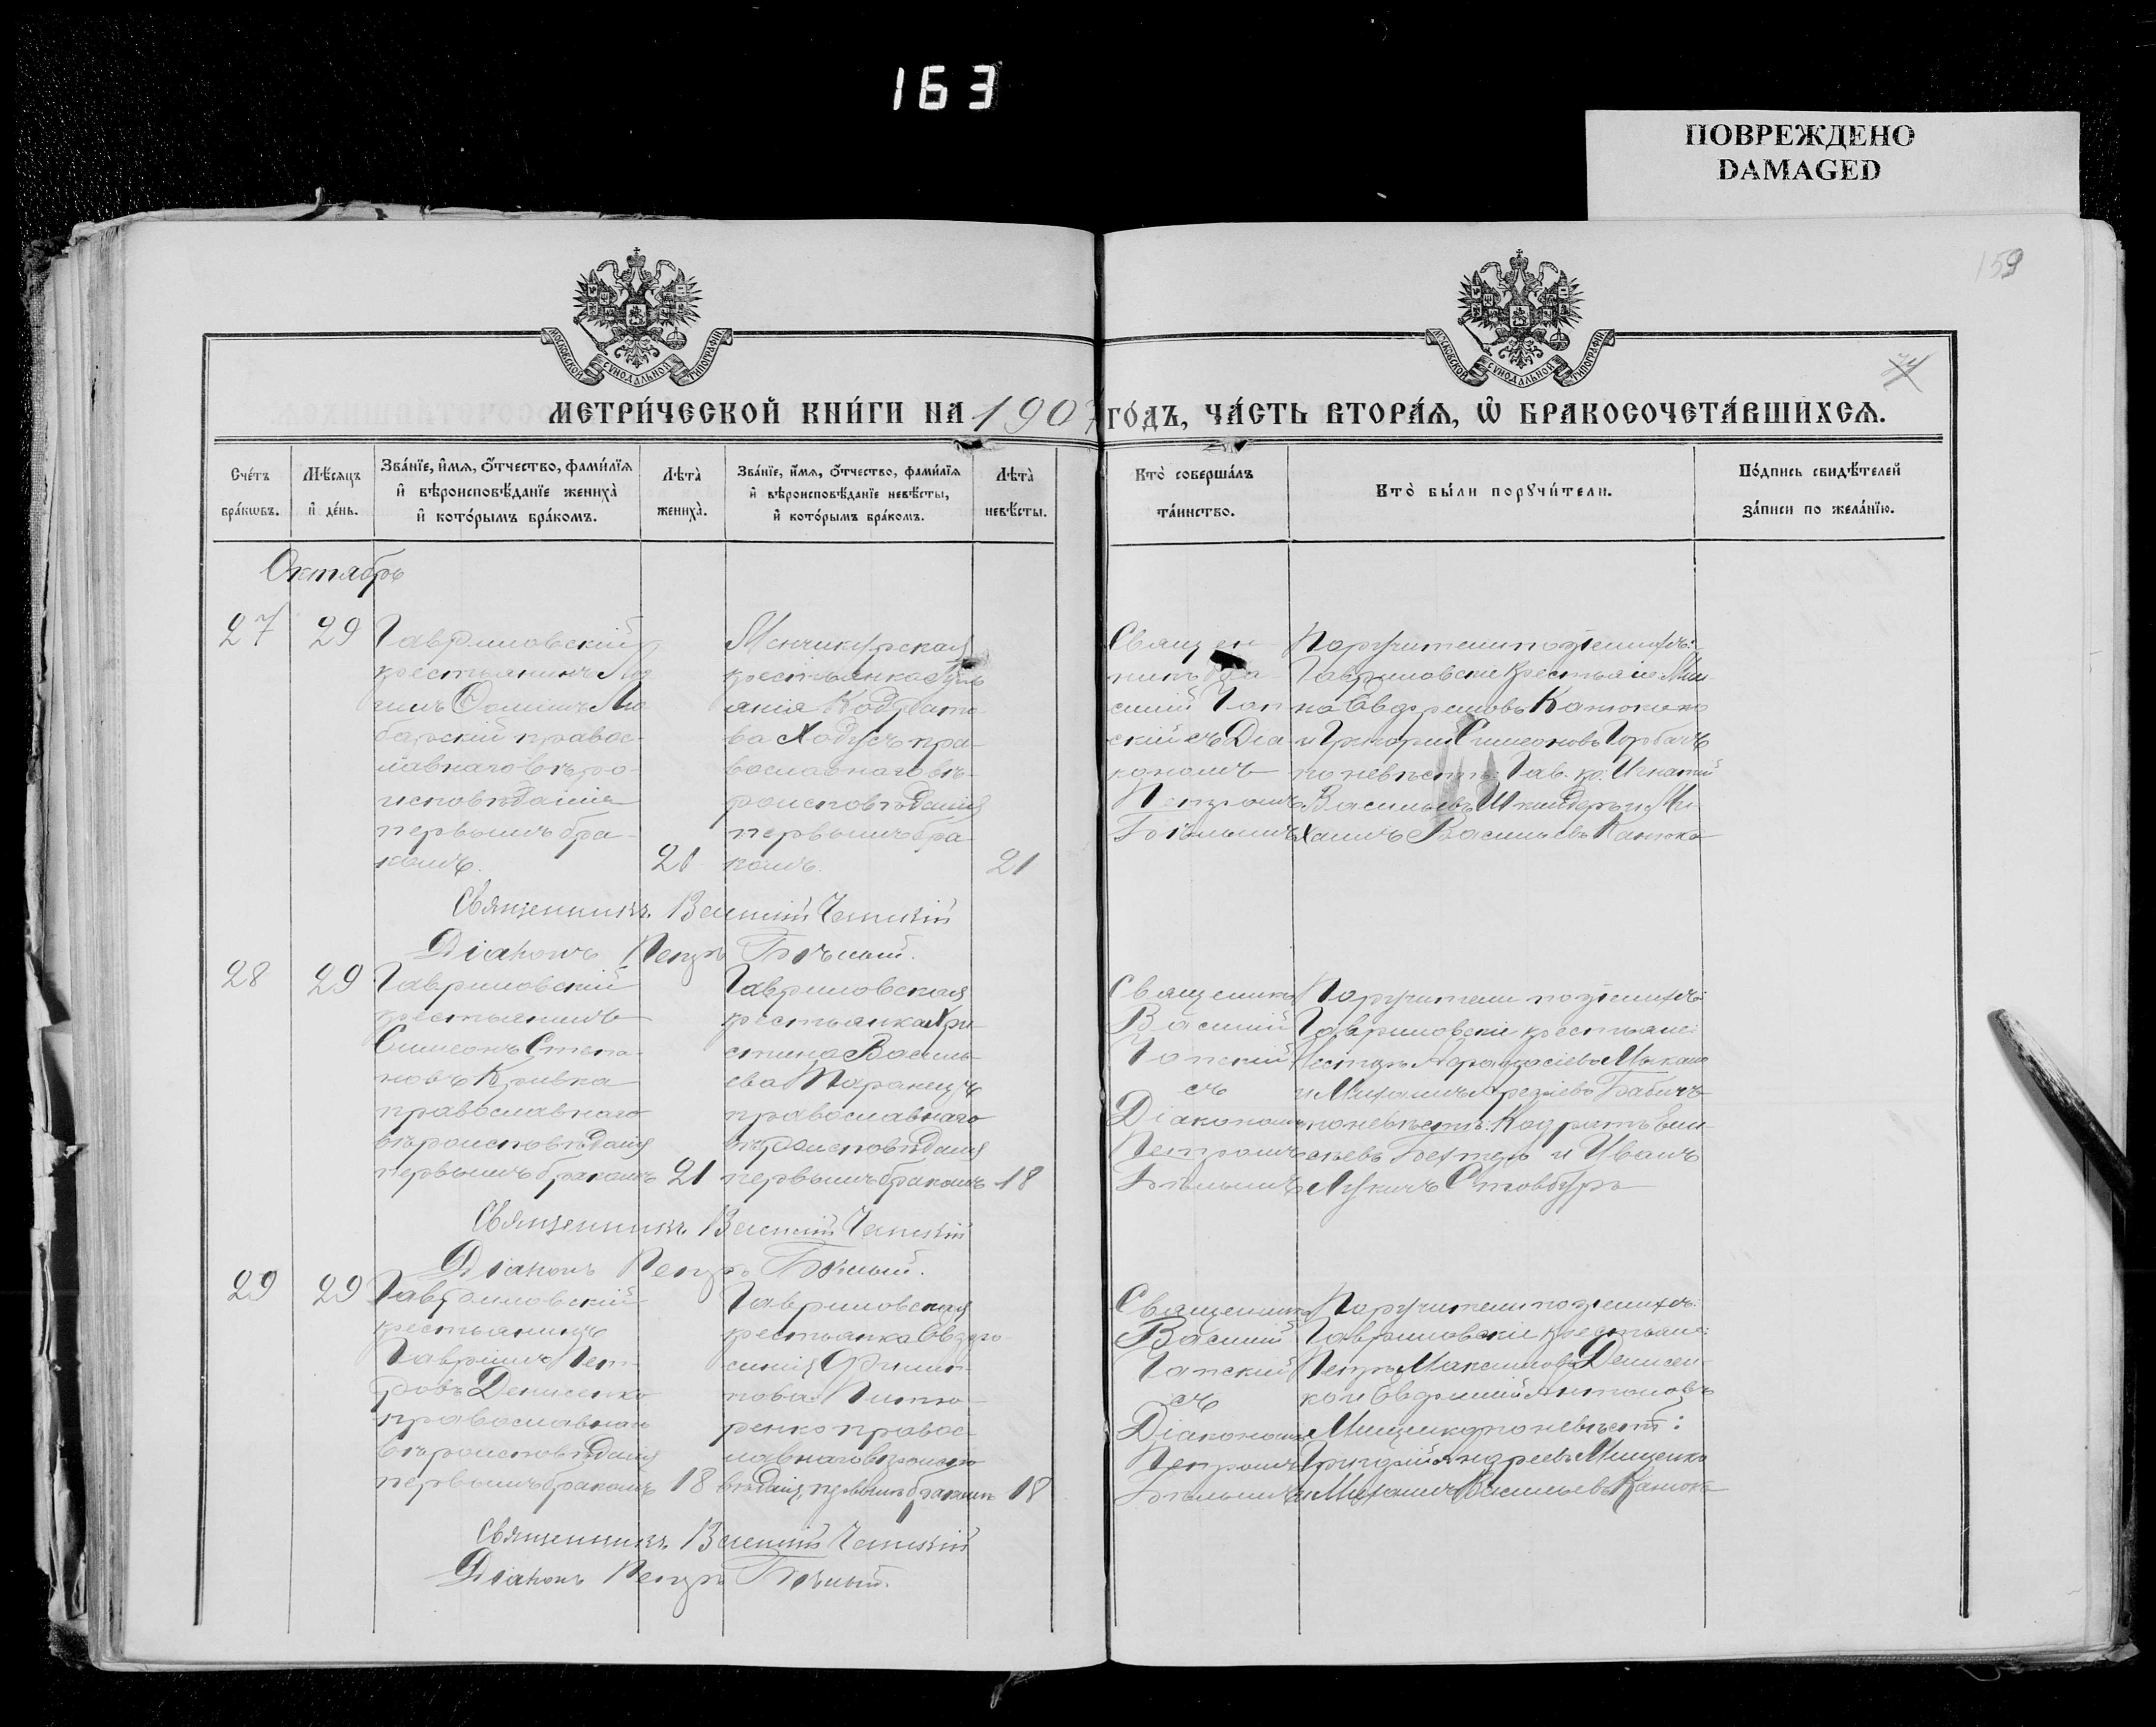 163
ПОВРЕЖДЕНО
DAMAGED
159
МОСКОВСКОЙ СѴНОДАЛЬНОЙ ТИПОГРАФІИ
МОСКОВСКОЙ СѴНОДАЛЬНОЙ ТИПОГРАФІИ
74
МЕТРИ́ЧЕСКОЙ КНИ́ГИ НА 1907 ГО́ДЪ, ЧА́СТЬ ВТОРА́Ѧ, Ѽ БРАКОСОЧЕТА́ВШИХСѦ.
Сче́тъ бра́кѡвъ.
Мѣ́сяцъ и҆ де́нь.
Зва́нїе, и҆́мѧ, ѻ҆́тчество, фами́лїѧ
и҆ вѣроисповѣ́данїе жениха̀
и҆ кото́рымъ бра́комъ.
Лѣта̀ жениха̀.
Зва́нїе, и҆́мѧ, ѻ҆́тчество, фами́лїѧ
и҆ вѣроисповѣ́данїе невѣ́сты,
и҆ кото́рымъ бра́комъ.
Лѣта̀ невѣ́сты.
Кто̀ соверша́лъ та́инство.
Кто̀ бы́ли порꙋчи́тели.
По́дпись свидѣ́телей
за́писи по жела́нїю.
Октябрь
27
29
Гавриловскій
крестьянинъ
барскій правос-
лавнаго вѣро-
исповѣданія
первымъ бра-
комъ.
21
крестьянка
ва Ходусъ пра-
вославнаго вѣ-
роисповѣданія
первымъ бра-
комъ.
21
Священ
силій Чап
скій съ Діа
кономъ
Петромъ
Бѣлымъ
Поручители по женихѣ:
Гавриловскіе крестьяне
и Григорій Симеоновъ Горбачъ
по невѣстѣ: Гав. кр. Игнатій
Васильевъ
хаилъ Васильевъ Канюка
Священникъ Василій Чапскій
Діаконъ Петръ Бѣлый.
28
29
Гавриловскій
крестьянинъ
Симеонъ Степа-
новъ Кривка
православнаго
вѣроисповѣданія
первымъ бракомъ
21
Гавриловская
крестьянка Хри-
стина Василь-
ева
православнаго
вѣроисповѣданія
первымъ бракомъ
18
Священникъ
Василій
Чапскій
съ
Діакономъ
Петромъ
Бѣлымъ
Поручители по женихѣ:
Гавриловскіе крестьяне:
Нестеръ
и Михаилъ Бабичъ
по невѣстѣ: Кодратъ Ели-
сѣевъ Бехтеръ и Иванъ
Лукичъ Стовбуръ
Священникъ Василій Чапскій
Діаконъ Петръ Бѣлый.
29
29
Гавриловскій
крестьянинъ
Гавріилъ Пет-
ровъ Денисенко
православнаго
вѣроисповѣданія
первымъ бракомъ
18
Гавриловская
крестьянка Евдро-
синія Филип-
пова
ренко правос-
лавнаго вѣроиспо-
вѣданія, первымъ бракомъ
18
Священникъ
Василій
Чапскій
съ
Діакономъ
Петромъ
Бѣлымъ
Поручители по женихѣ:
Гавриловскіе крестьяне:
Петръ Максимовъ Денисен-
ко и Евфимій Антоновъ
по невѣстѣ:
Григорій Андреевъ Мищенко
и Михаилъ Васильевъ Канюка
Священникъ Василій Чапскій
Діаконъ Петръ Бѣлый.